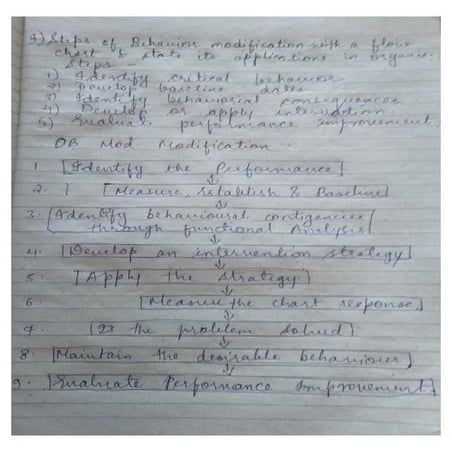 9) Steps of Behaviour modification with a flow
chart & state its applications in organi
Steps -
1) Identify critical behaviour
2) Develop baseline data
3) Identify behavioural consequences
4) Develop or apply intervention
5) Evaluate performance improvement
OB Mod Modification :-
1 [Identify the Performance]
2. [Measure, Establish & Baseline]
3. [Identify behavioural contigencies
through functional Analysis]
4. [Develop an intervention strategy]
5 [Apply the strategy]
6 [Measure the chart response]
7. [Is the problem solved]
8. [Maintain the desirable behaviour]
9. [Evaluate Performance Improvement]